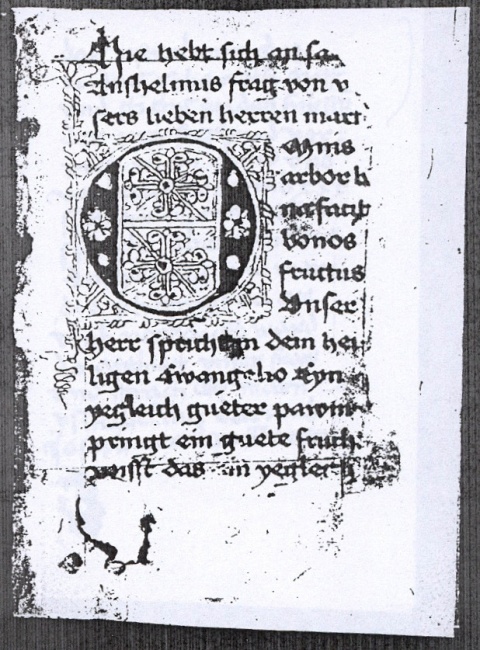 Hie hebt sich an sa
Anshelmus frag von v
sers lieben herren mart
Omnis
arbor b
na facit
bonos
fructus
Vnser
herr spricht in dem hei
ligen Ewangelio Eyn
yegleich gueter pawm
pringt ein guete fruch
wisst das ein yegleich